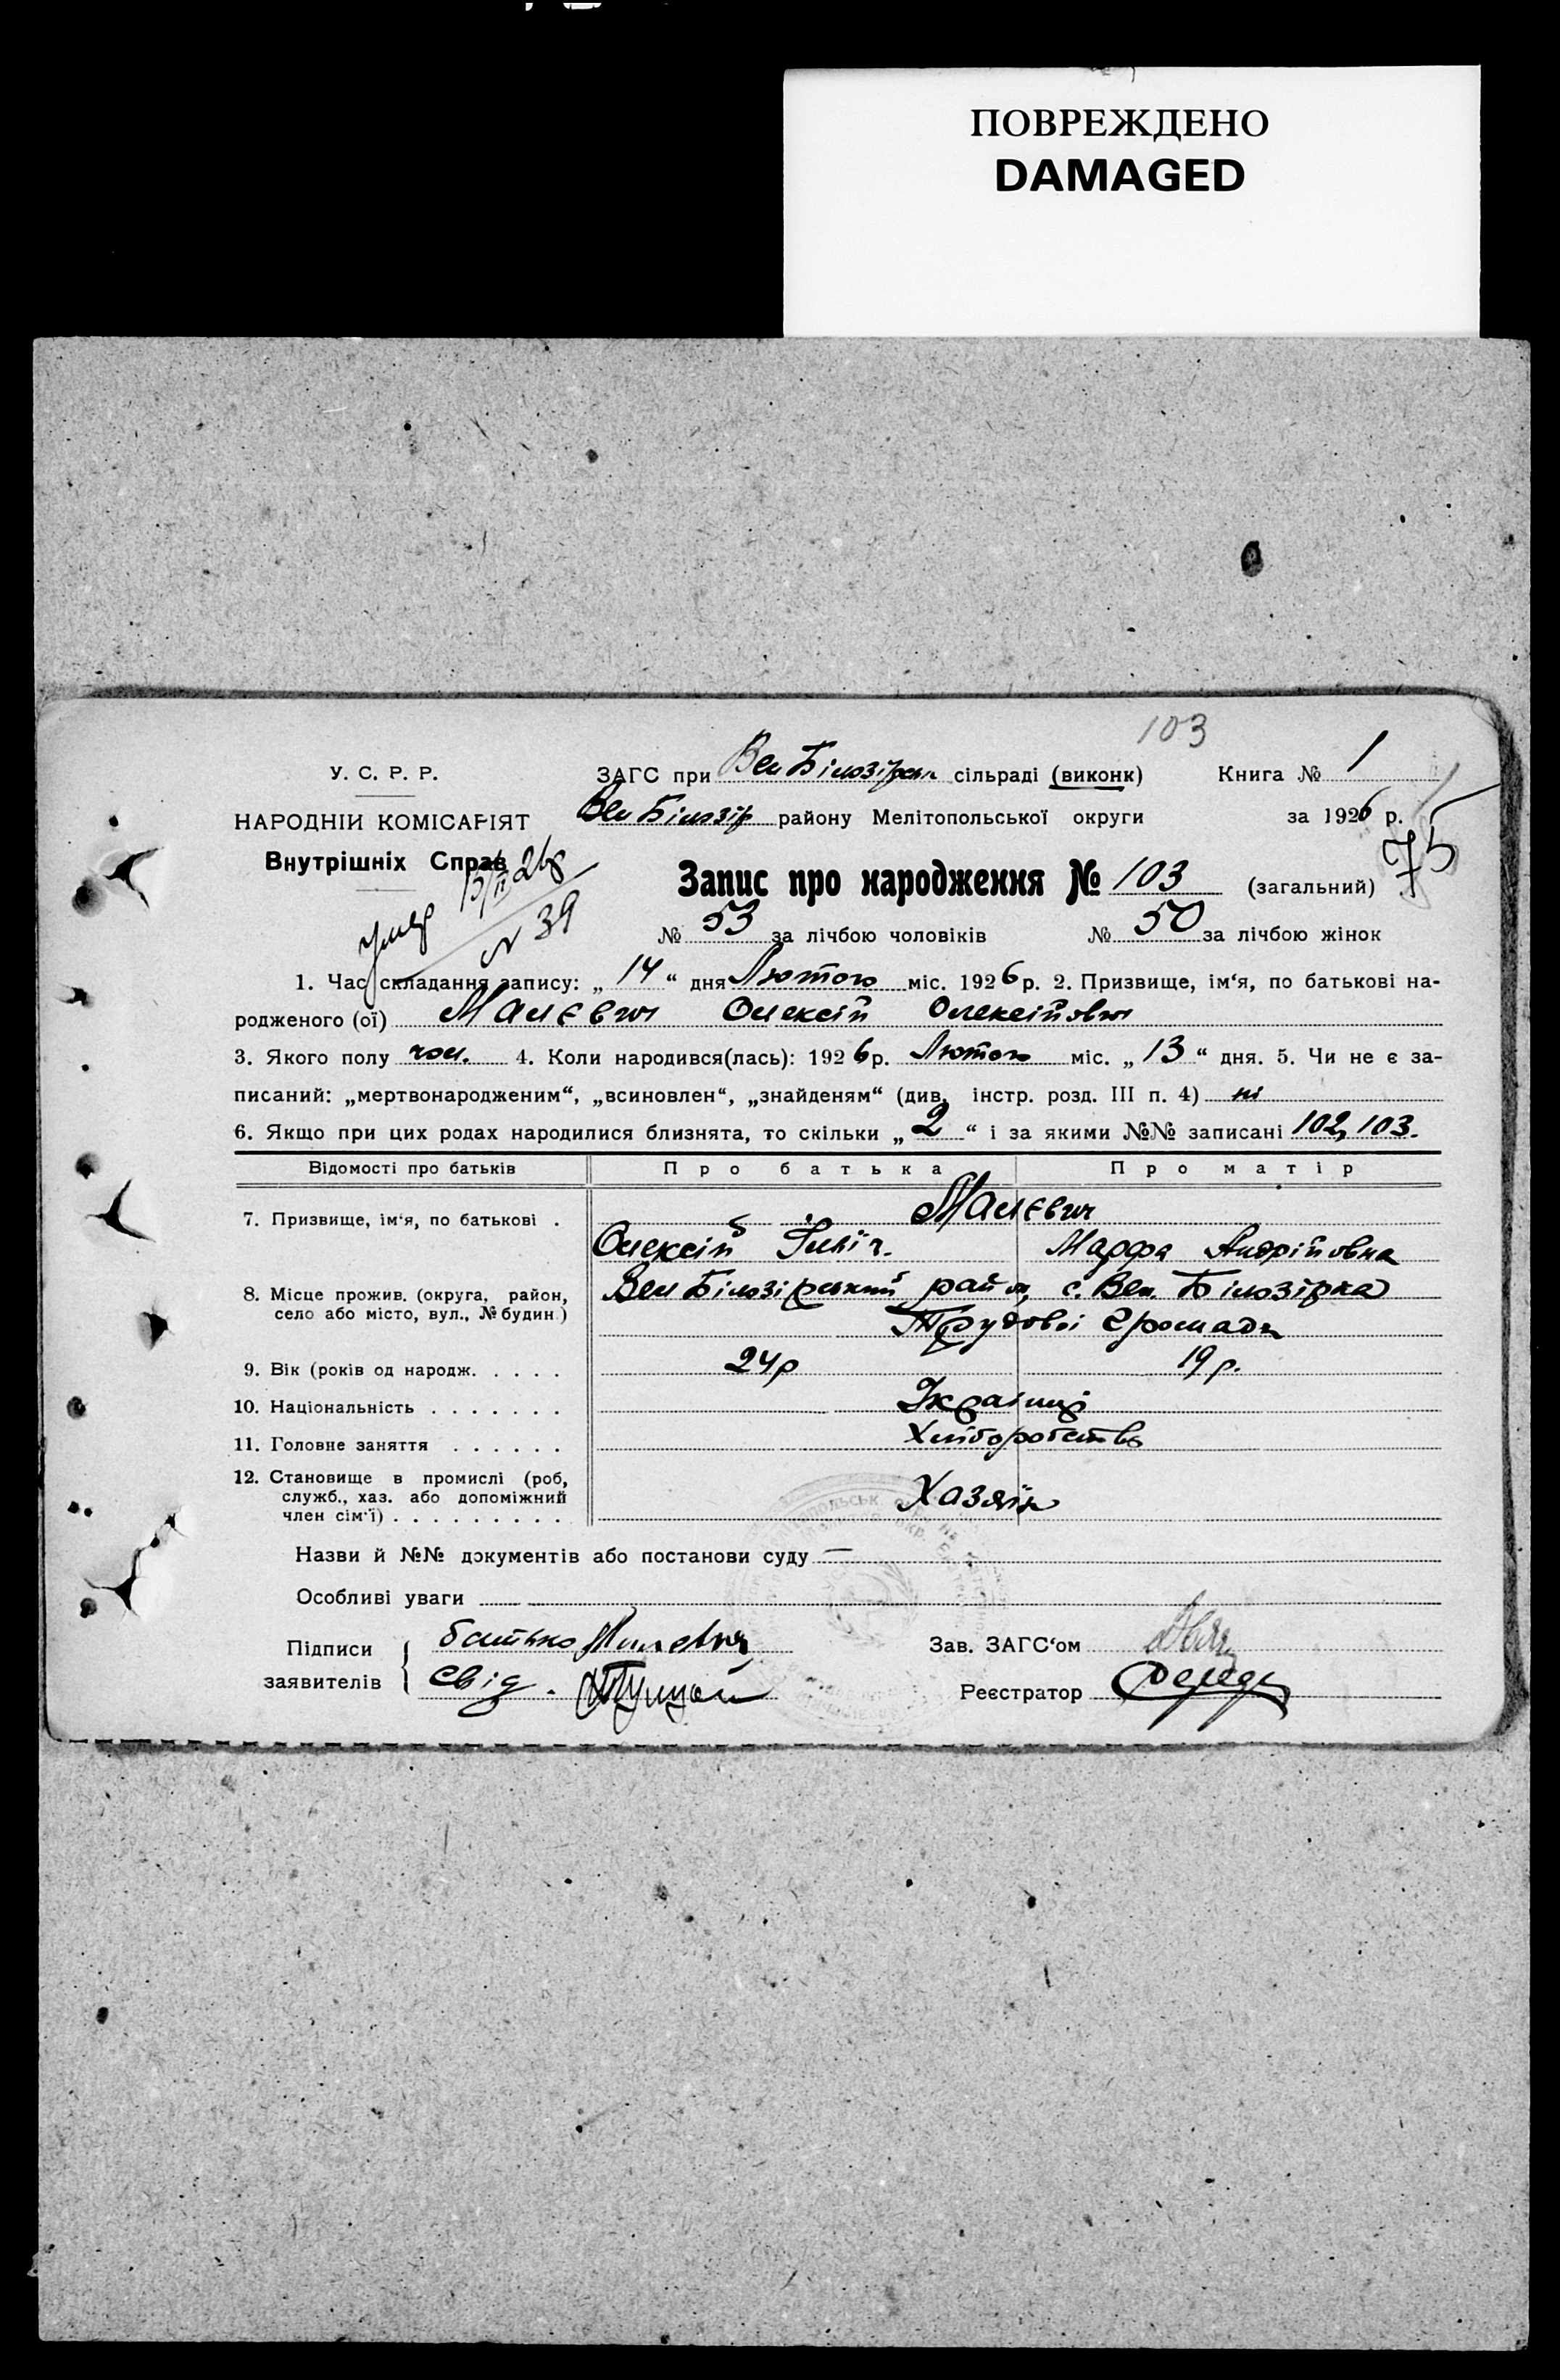 ПОВРЕЖДЕНО
DAMAGED
103
У. С. Р. Р.
ЗАГС при Вел Білозірськ сільраді (виконк) Книга № 1
НАРОДНІИ КОМІСАРІЯТ
Вел Білозір району Мелітопольської округи за 1926 р.
75
Внутрішніх Справ
Умер 26р
N 39
Запис про народження № 103 (загальний)
№ 53 за лічбою чоловіків № 50 за лічбою жінок
1. Час складання запису: „ 14 “ дня Лютого міс. 1926 р. 2. Призвище, ім‘я, по батькові на-
родженого (ої) Малєвич Олексій Олексійович
3. Якого полу чол. 4. Коли народився(лась): 1926 р. Лютого міс. „ 13 “ дня. 5. Чи не є за-
писаний: „мертвонародженим“, „всиновлен“, „знайденям“ (див. інстр. розд. III п. 4) ні
6. Якщо при цих родах народилися близнята, то скільки „ 2 “ і за якими №№ записані 102, 103.
Відомості про батьків Про батька Про матір
7. Призвище, ім‘я, по батькові . Малєвич
Олексій Ілліч. Марфа Андрійовна
8. Місце прожив. (округа, район, Вел Білозірський район, с. Вел. Білозірка
село або місто, вул., № будин.) Трудової Громади
9. Вік (років од народж. . . . . 24р 19 р.
10. Національність . . . . . . . Українці
11. Головне заняття . . . . . . Хліборобство
12. Становище в промислі (роб, Хазяїн
служб., хаз. або допоміжний
член сім‘ї) . . . . . . . . .
Назви й №№ документів або постанови суду —
Особливі уваги
Підписи батько Малєвич Зав. ЗАГС‘ом
заявителів свід. Реєстратор